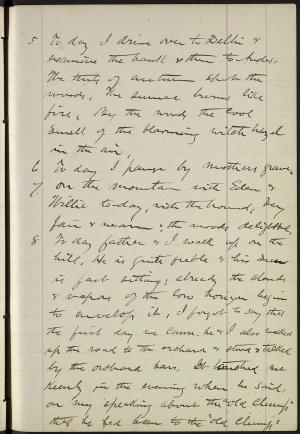 5. To day I drive over to Delhi &
examine the bank & then to Andes.
The tints of autumn upon the
woods. The sumac burns like
fire. By the woods the cool
smell of the blooming witch hazel
in the air.
6. To day I pause by mothers grave.
7. On the mountain with Eden &
Willie to-day, with the hound, very
fair & warm; the woods delightful.
8. To day father & I walk up on the
hill. He is quite feeble & his sun
is fast setting; already the clouds
& vapors of the low horizon begin
to envelop it. I forgot to say that
the first day we came, he & I also walked
up the road to the orchard & stood & talked
by the orchard bars. It touched me
keenly in the evening when he said,
on my speaking about the "old Clump"
that he had been to the "old Clump"